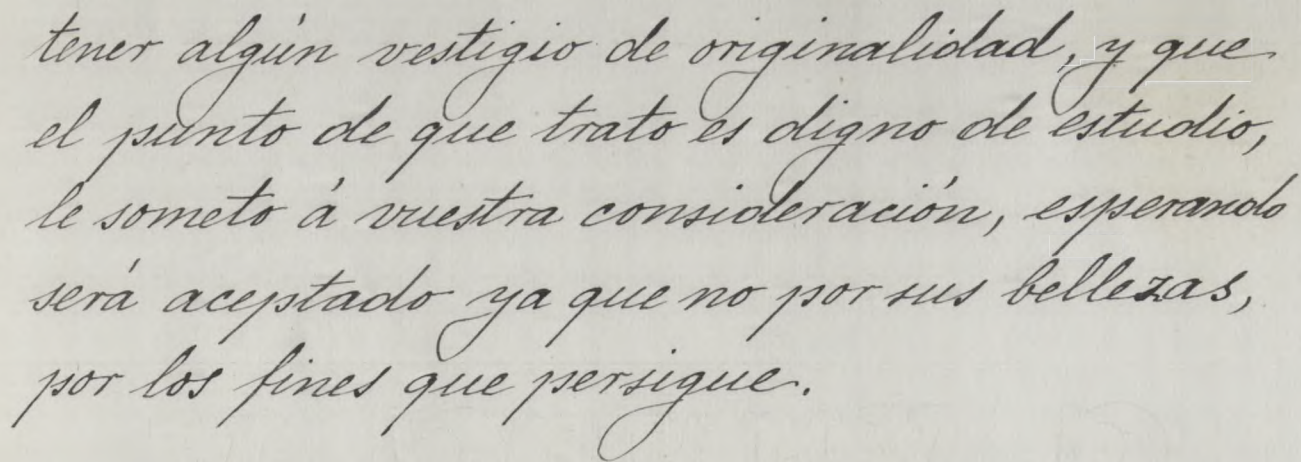 tener algún vestigio de originalidad, y que
el punto de que trato es digno de estudio,
le someto á vuestra consideración, esperando
será aceptado ya que no por sus bellezas,
por los fines que persigue.